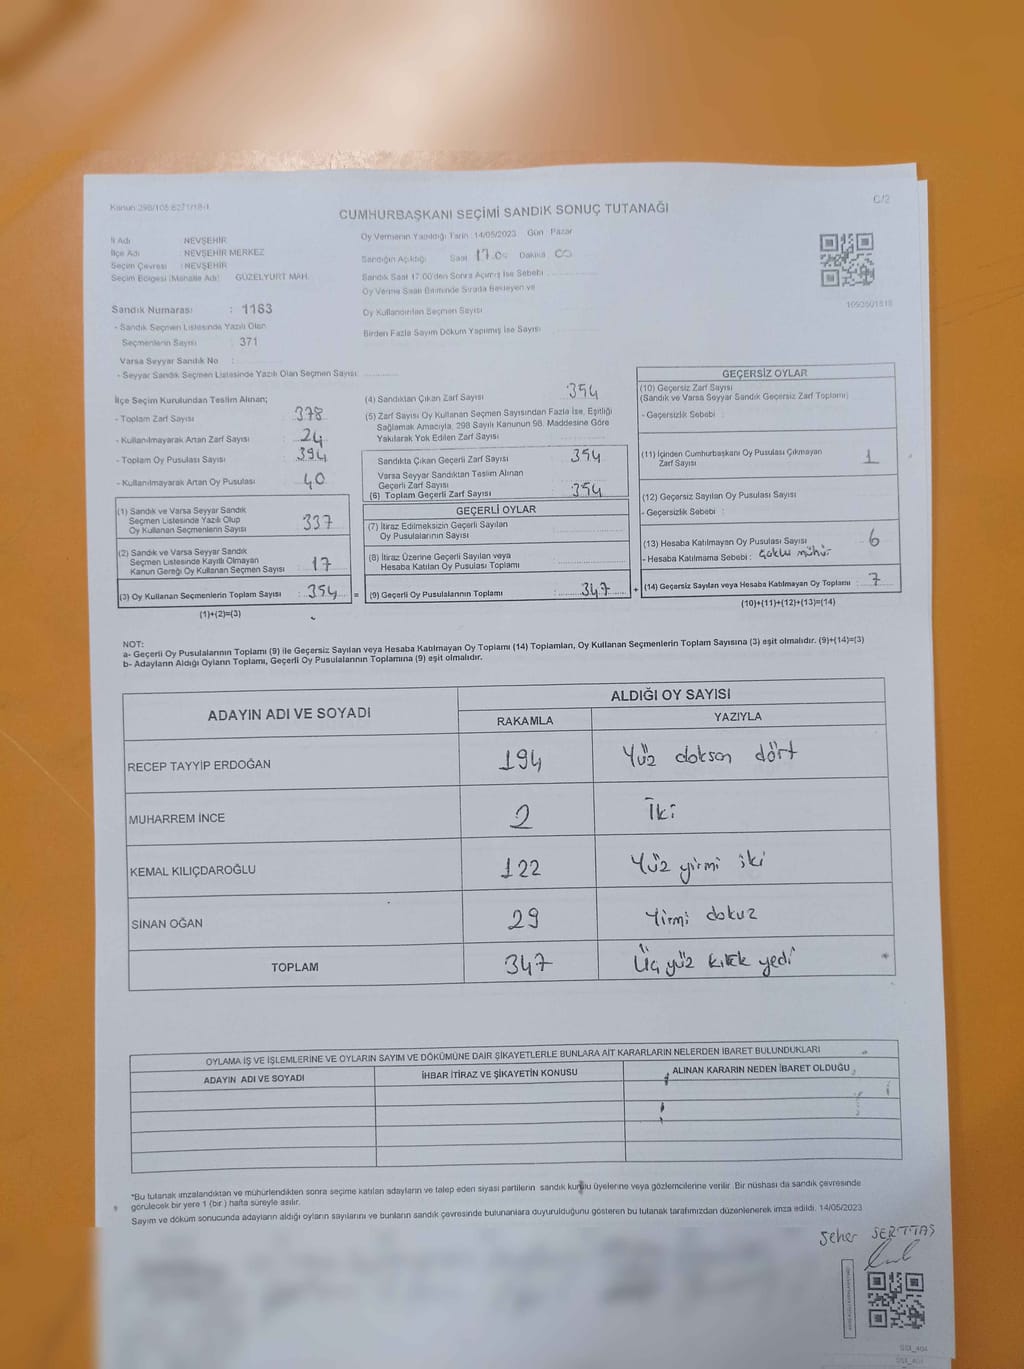 Kanun:298/105 6271/18-1
C/2
CUMHURBAŞKANI SEÇİMİ SANDIK SONUÇ TUTANAĞI
İl Adı : NEVŞEHİR
İlçe Adı : NEVŞEHİR MERKEZ
Seçim Çevresi : NEVŞEHİR
Seçim Bölgesi (Mahalle Adı) : GÜZELYURT MAH.
Sandık Numarası : 1163
- Sandık Seçmen Listesinde Yazılı Olan
Seçmenlerin Sayısı : 371
Varsa Seyyar Sandık No :
- Seyyar Sandık Seçmen Listesinde Yazılı Olan Seçmen Sayısı :
Oy Vermenin Yapıldığı Tarih : 14/05/2023 Gün Pazar
Sandığın Açıldığı Saat 17.00 Dakika 00
Sandık Saat 17.00'den Sonra Açılmış İse Sebebi
Oy Verme Saati Bitiminde Sırada Bekleyen ve
Oy Kullandırılan Seçmen Sayısı
Birden Fazla Sayım Döküm Yapılmış İse Sayısı
1093601818
İlçe Seçim Kurulundan Teslim Alınan;
- Toplam Zarf Sayısı : 378
- Kullanılmayarak Artan Zarf Sayısı : 24
- Toplam Oy Pusulası Sayısı : 394
- Kullanılmayarak Artan Oy Pusulası : 40
(1) Sandık ve Varsa Seyyar Sandık
Seçmen Listesinde Yazılı Olup
Oy Kullanan Seçmenlerin Sayısı : 337
(2) Sandık ve Varsa Seyyar Sandık
Seçmen Listesinde Kayıtlı Olmayan
Kanun Gereği Oy Kullanan Seçmen Sayısı : 17
(3) Oy Kullanan Seçmenlerin Toplam Sayısı : 354 =
(1)+(2)=(3)
(4) Sandıktan Çıkan Zarf Sayısı : 354
(5) Zarf Sayısı Oy Kullanan Seçmen Sayısından Fazla İse, Eşitliği
Sağlamak Amacıyla, 298 Sayılı Kanunun 98. Maddesine Göre
Yakılarak Yok Edilen Zarf Sayısı
Sandıkta Çıkan Geçerli Zarf Sayısı : 354
Varsa Seyyar Sandıktan Teslim Alınan
Geçerli Zarf Sayısı
(6) Toplam Geçerli Zarf Sayısı : 354
GEÇERLİ OYLAR
(7) İtiraz Edilmeksizin Geçerli Sayılan
Oy Pusulalarının Sayısı
(8) İtiraz Üzerine Geçerli Sayılan veya
Hesaba Katılan Oy Pusulası Toplamı
(9) Geçerli Oy Pusulalarının Toplamı : 347 +
GEÇERSİZ OYLAR
(10) Geçersiz Zarf Sayısı
(Sandık ve Varsa Seyyar Sandık Geçersiz Zarf Toplamı)
- Geçersizlik Sebebi :
(11) İçinden Cumhurbaşkanı Oy Pusulası Çıkmayan
Zarf Sayısı : 1
(12) Geçersiz Sayılan Oy Pusulası Sayısı
- Geçersizlik Sebebi :
(13) Hesaba Katılmayan Oy Pusulası Sayısı : 6
- Hesaba Katılmama Sebebi : Çoklu mühür
(14) Geçersiz Sayılan veya Hesaba Katılmayan Oy Toplamı : 7
(10)+(11)+(12)+(13)=(14)
NOT:
a- Geçerli Oy Pusulalarının Toplamı (9) ile Geçersiz Sayılan veya Hesaba Katılmayan Oy Toplamı (14) Toplamları, Oy Kullanan Seçmenlerin Toplam Sayısına (3) eşit olmalıdır. (9)+(14)=(3)
b- Adayların Aldığı Oyların Toplamı, Geçerli Oy Pusulalarının Toplamına (9) eşit olmalıdır.
ADAYIN ADI VE SOYADI
ALDIĞI OY SAYISI
RAKAMLA YAZIYLA
RECEP TAYYİP ERDOĞAN 194 Yüz doksan dört
MUHARREM İNCE 2 İki
KEMAL KILIÇDAROĞLU 122 Yüz yirmi iki
SİNAN OĞAN 29 Yirmi dokuz
TOPLAM 347 Üç yüz kırk yedi
OYLAMA İŞ VE İŞLEMLERİNE VE OYLARIN SAYIM VE DÖKÜMÜNE DAİR ŞİKAYETLERLE BUNLARA AİT KARARLARIN NELERDEN İBARET BULUNDUKLARI
ADAYIN ADI VE SOYADI İHBAR İTİRAZ VE ŞİKAYETİN KONUSU ALINAN KARARIN NEDEN İBARET OLDUĞU
*Bu tutanak imzalandıktan ve mühürlendikten sonra seçime katılan adayların ve talep eden siyasi partilerin sandık kurulu üyelerine veya gözlemcilerine verilir. Bir nüshası da sandık çevresinde
görülecek bir yere 1 (bir) hafta süreyle asılır.
Sayım ve döküm sonucunda adayların aldığı oyların sayılarını ve bunların sandık çevresinde bulunanlara duyurulduğunu gösteren bu tutanak tarafımızdan düzenlenerek imza edildi. 14/05/2023
Seher SERTTAŞ
SSI_404